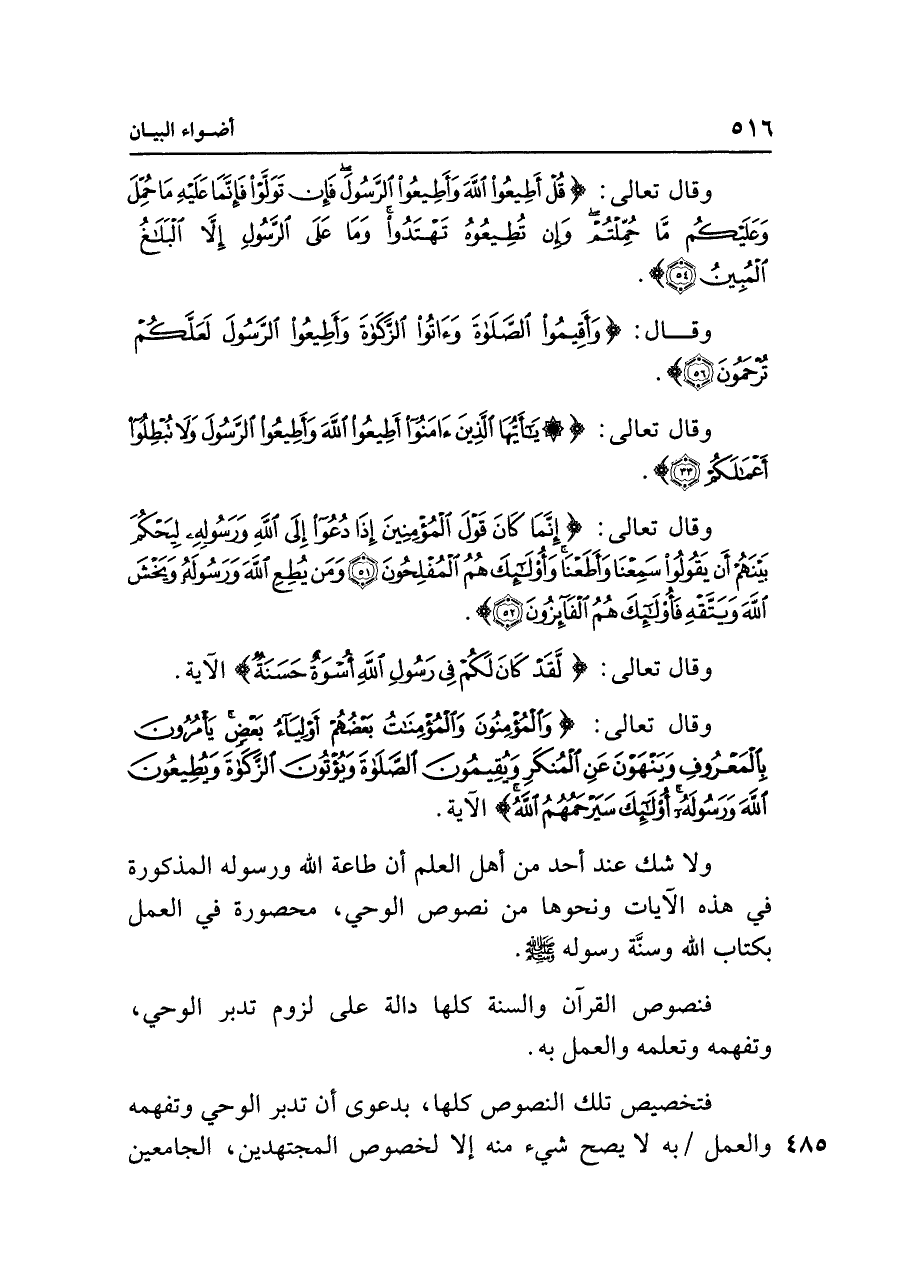 ٥١٦ أضواء البيان
وقال تعالى: ﴿ قُلْ أَطِيعُوا۟ ٱللَّهَ وَأَطِيعُوا۟ ٱلرَّسُولَ ۖ فَإِن تَوَلَّوْا۟ فَإِنَّمَا عَلَيْهِ مَا حُمِّلَ
وَعَلَيْكُم مَّا حُمِّلْتُمْ ۖ وَإِن تُطِيعُوهُ تَهْتَدُوا۟ ۚ وَمَا عَلَى ٱلرَّسُولِ إِلَّا ٱلْبَلَـٰغُ
ٱلْمُبِينُ ٥٤﴾.
وقال: ﴿ وَأَقِيمُوا۟ ٱلصَّلَوٰةَ وَءَاتُوا۟ ٱلزَّكَوٰةَ وَأَطِيعُوا۟ ٱلرَّسُولَ لَعَلَّكُمْ
تُرْحَمُونَ ٥٦﴾.
وقال تعالى: ﴿ ۞ يَـٰٓأَيُّهَا ٱلَّذِينَ ءَامَنُوٓا۟ أَطِيعُوا۟ ٱللَّهَ وَأَطِيعُوا۟ ٱلرَّسُولَ وَلَا تُبْطِلُوٓا۟
أَعْمَـٰلَكُمْ ٣٣﴾.
وقال تعالى: ﴿ إِنَّمَا كَانَ قَوْلَ ٱلْمُؤْمِنِينَ إِذَا دُعُوٓا۟ إِلَى ٱللَّهِ وَرَسُولِهِۦ لِيَحْكُمَ
بَيْنَهُمْ أَن يَقُولُوا۟ سَمِعْنَا وَأَطَعْنَا ۚ وَأُو۟لَـٰٓئِكَ هُمُ ٱلْمُفْلِحُونَ ٥١ وَمَن يُطِعِ ٱللَّهَ وَرَسُولَهُۥ وَيَخْشَ
ٱللَّهَ وَيَتَّقْهِ فَأُو۟لَـٰٓئِكَ هُمُ ٱلْفَآئِزُونَ ٥٢﴾.
وقال تعالى: ﴿ لَّقَدْ كَانَ لَكُمْ فِى رَسُولِ ٱللَّهِ أُسْوَةٌ حَسَنَةٌ﴾ الآية.
وقال تعالى: ﴿ وَٱلْمُؤْمِنُونَ وَٱلْمُؤْمِنَـٰتُ بَعْضُهُمْ أَوْلِيَآءُ بَعْضٍ ۚ يَأْمُرُونَ
بِٱلْمَعْرُوفِ وَيَنْهَوْنَ عَنِ ٱلْمُنكَرِ وَيُقِيمُونَ ٱلصَّلَوٰةَ وَيُؤْتُونَ ٱلزَّكَوٰةَ وَيُطِيعُونَ
ٱللَّهَ وَرَسُولَهُۥٓ ۚ أُو۟لَـٰٓئِكَ سَيَرْحَمُهُمُ ٱللَّهُ ۗ﴾ الآية.
ولا شك عند أحد من أهل العلم أن طاعة الله ورسوله المذكورة
في هذه الآيات ونحوها من نصوص الوحي، محصورة في العمل
بكتاب الله وسنَّة رسوله ﷺ.
فنصوص القرآن والسنة كلها دالة على لزوم تدبر الوحي،
وتفهمه وتعلمه والعمل به.
فتخصيص تلك النصوص كلها، بدعوى أن تدبر الوحي وتفهمه
٤٨٥ والعمل /به لا يصح شيء منه إلا لخصوص المجتهدين، الجامعين